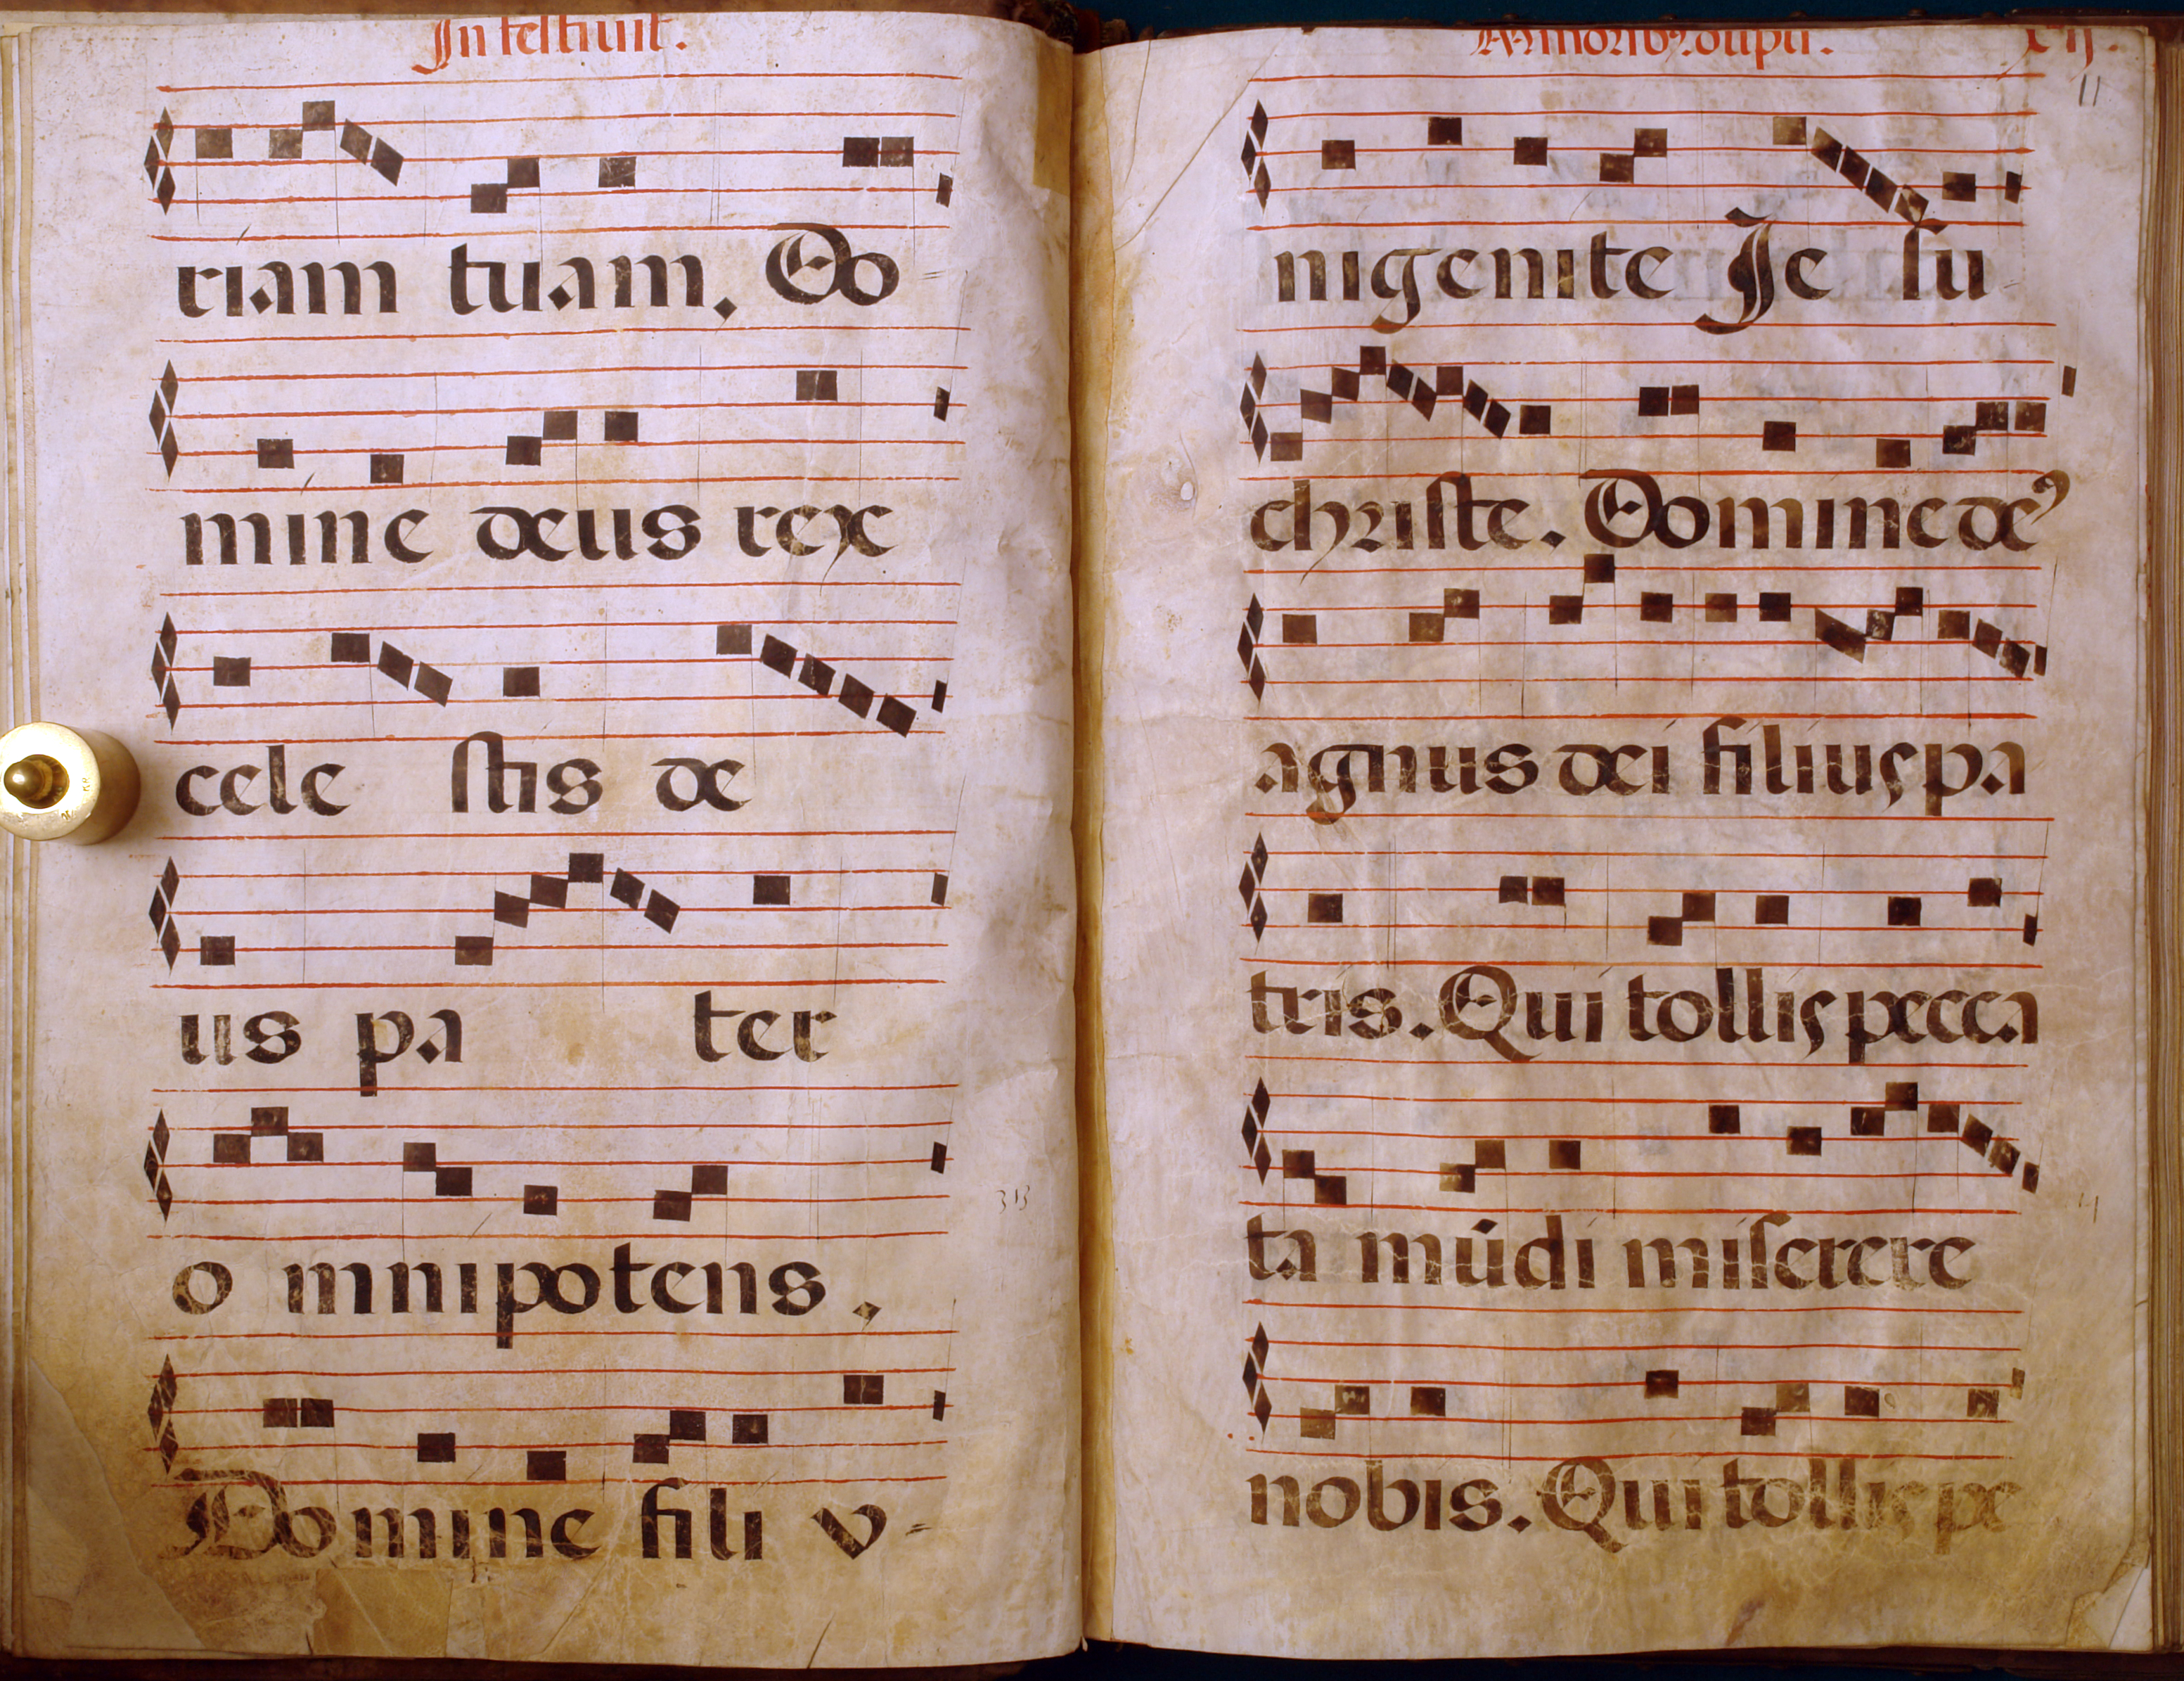 In festiuit.
riam tuam. Do=
mine deus rex
cele stis de
us pa ter
o mnipotens.
Domine fili v=
11
nigenite Je su
christe. Domine deꝰ
agnus dei filius pa
tris. Qui tollis pecca
ta mūdi miserere
nobis. Qui tollis pe